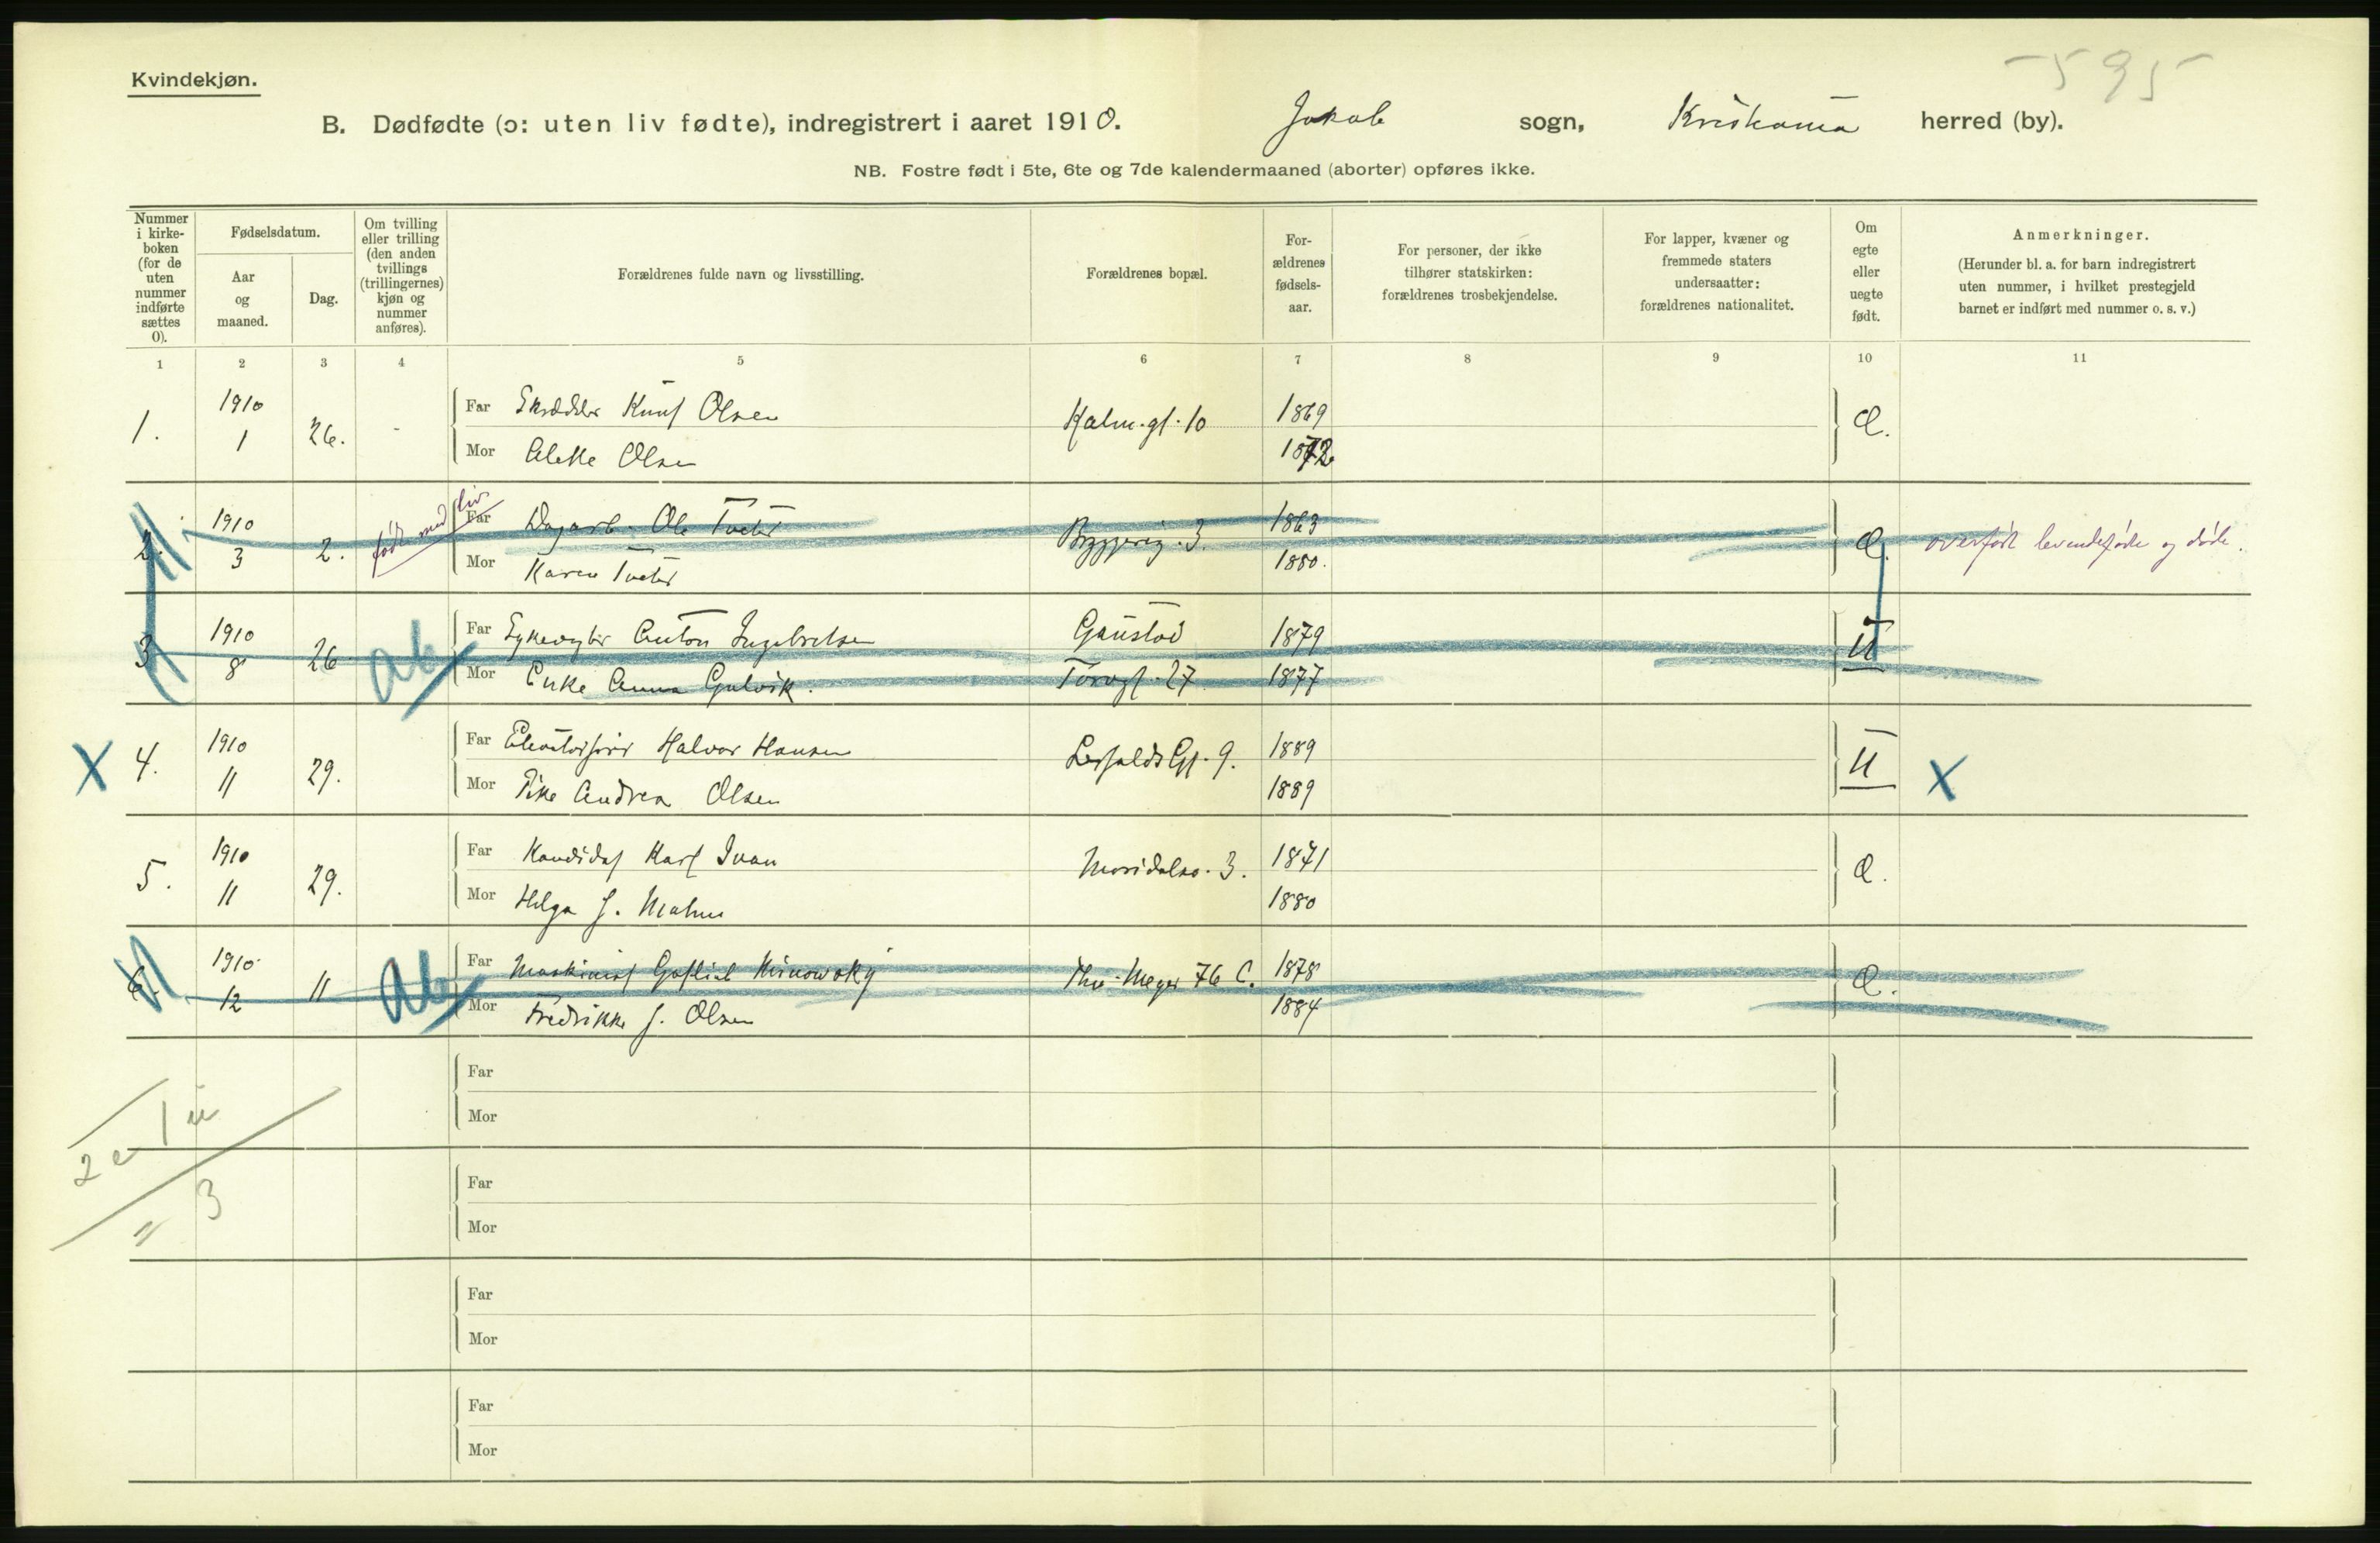 Kvindekjøn.
595
B. Dødfødte (ɔ: uten liv fødte), indregistrert i aaret 1910. Jakob sogn, Kristiania herred (by).
NB. Fostre født i 5te, 6te og 7de kalendermaaned (aborter) opføres ikke.
Nummer i kirkeboken (for de uten nummer indførte sættes 0).
Fødselsdatum.
Aar og maaned.
Dag.
Om tvilling eller trilling (den anden tvillings (trillingernes) kjøn og nummer anføres).
Forældrenes fulde navn og livsstilling.
Forældrenes bopæl.
For-ældrenes fødsels-aar.
For personer, der ikke tilhører statskirken: forældrenes trosbekjendelse.
For lapper, kvæner og fremmede staters undersaatter: forældrenes nationalitet.
Om egte eller uegte født.
Anmerkninger.
(Herunder bl. a. for barn indregistrert uten nummer, i hvilket prestegjeld barnet er indført med nummer o. s. v.)
1 2 3 4 5 6 7 8 9 10 11
1. 1910 1 26. -
Far Skrædder Knut Olsen Holm.gt. 10 1869 Æ.
Mor Olsen 1872
2. 1910 3 2. født med liv
Far Dagarb. Ole Tveter Bryggerig. 3. 1863 Æ. overført levendefødte og døde.
Mor Karen Tveter 1880.
3 1910 8 26 Ab
Far Sykevogter Anton Ingebretsen Gaustad 1879 U
Mor Enke Anna Gulvik. Torvgt. 27 1877
X 4. 1910 11 29.
Far Elevatorfører Halvor Hansen 9. 1889 U X
Mor Pike Andrea Olsen 1889
5. 1910 11 29.
Far Kandidat Karl Ivan Maridalsv. 3. 1871 Æ.
Mor Helga J. Malm 1880
6. 1910 12 11 Ab
Far Maskinist Thv. Meyer 76 C. 1878 Æ.
Mor Fredrikke J. Olsen 1884
Far
Mor
1 u
2 e
= 3
Far
Mor
Far
Mor
Far
Mor